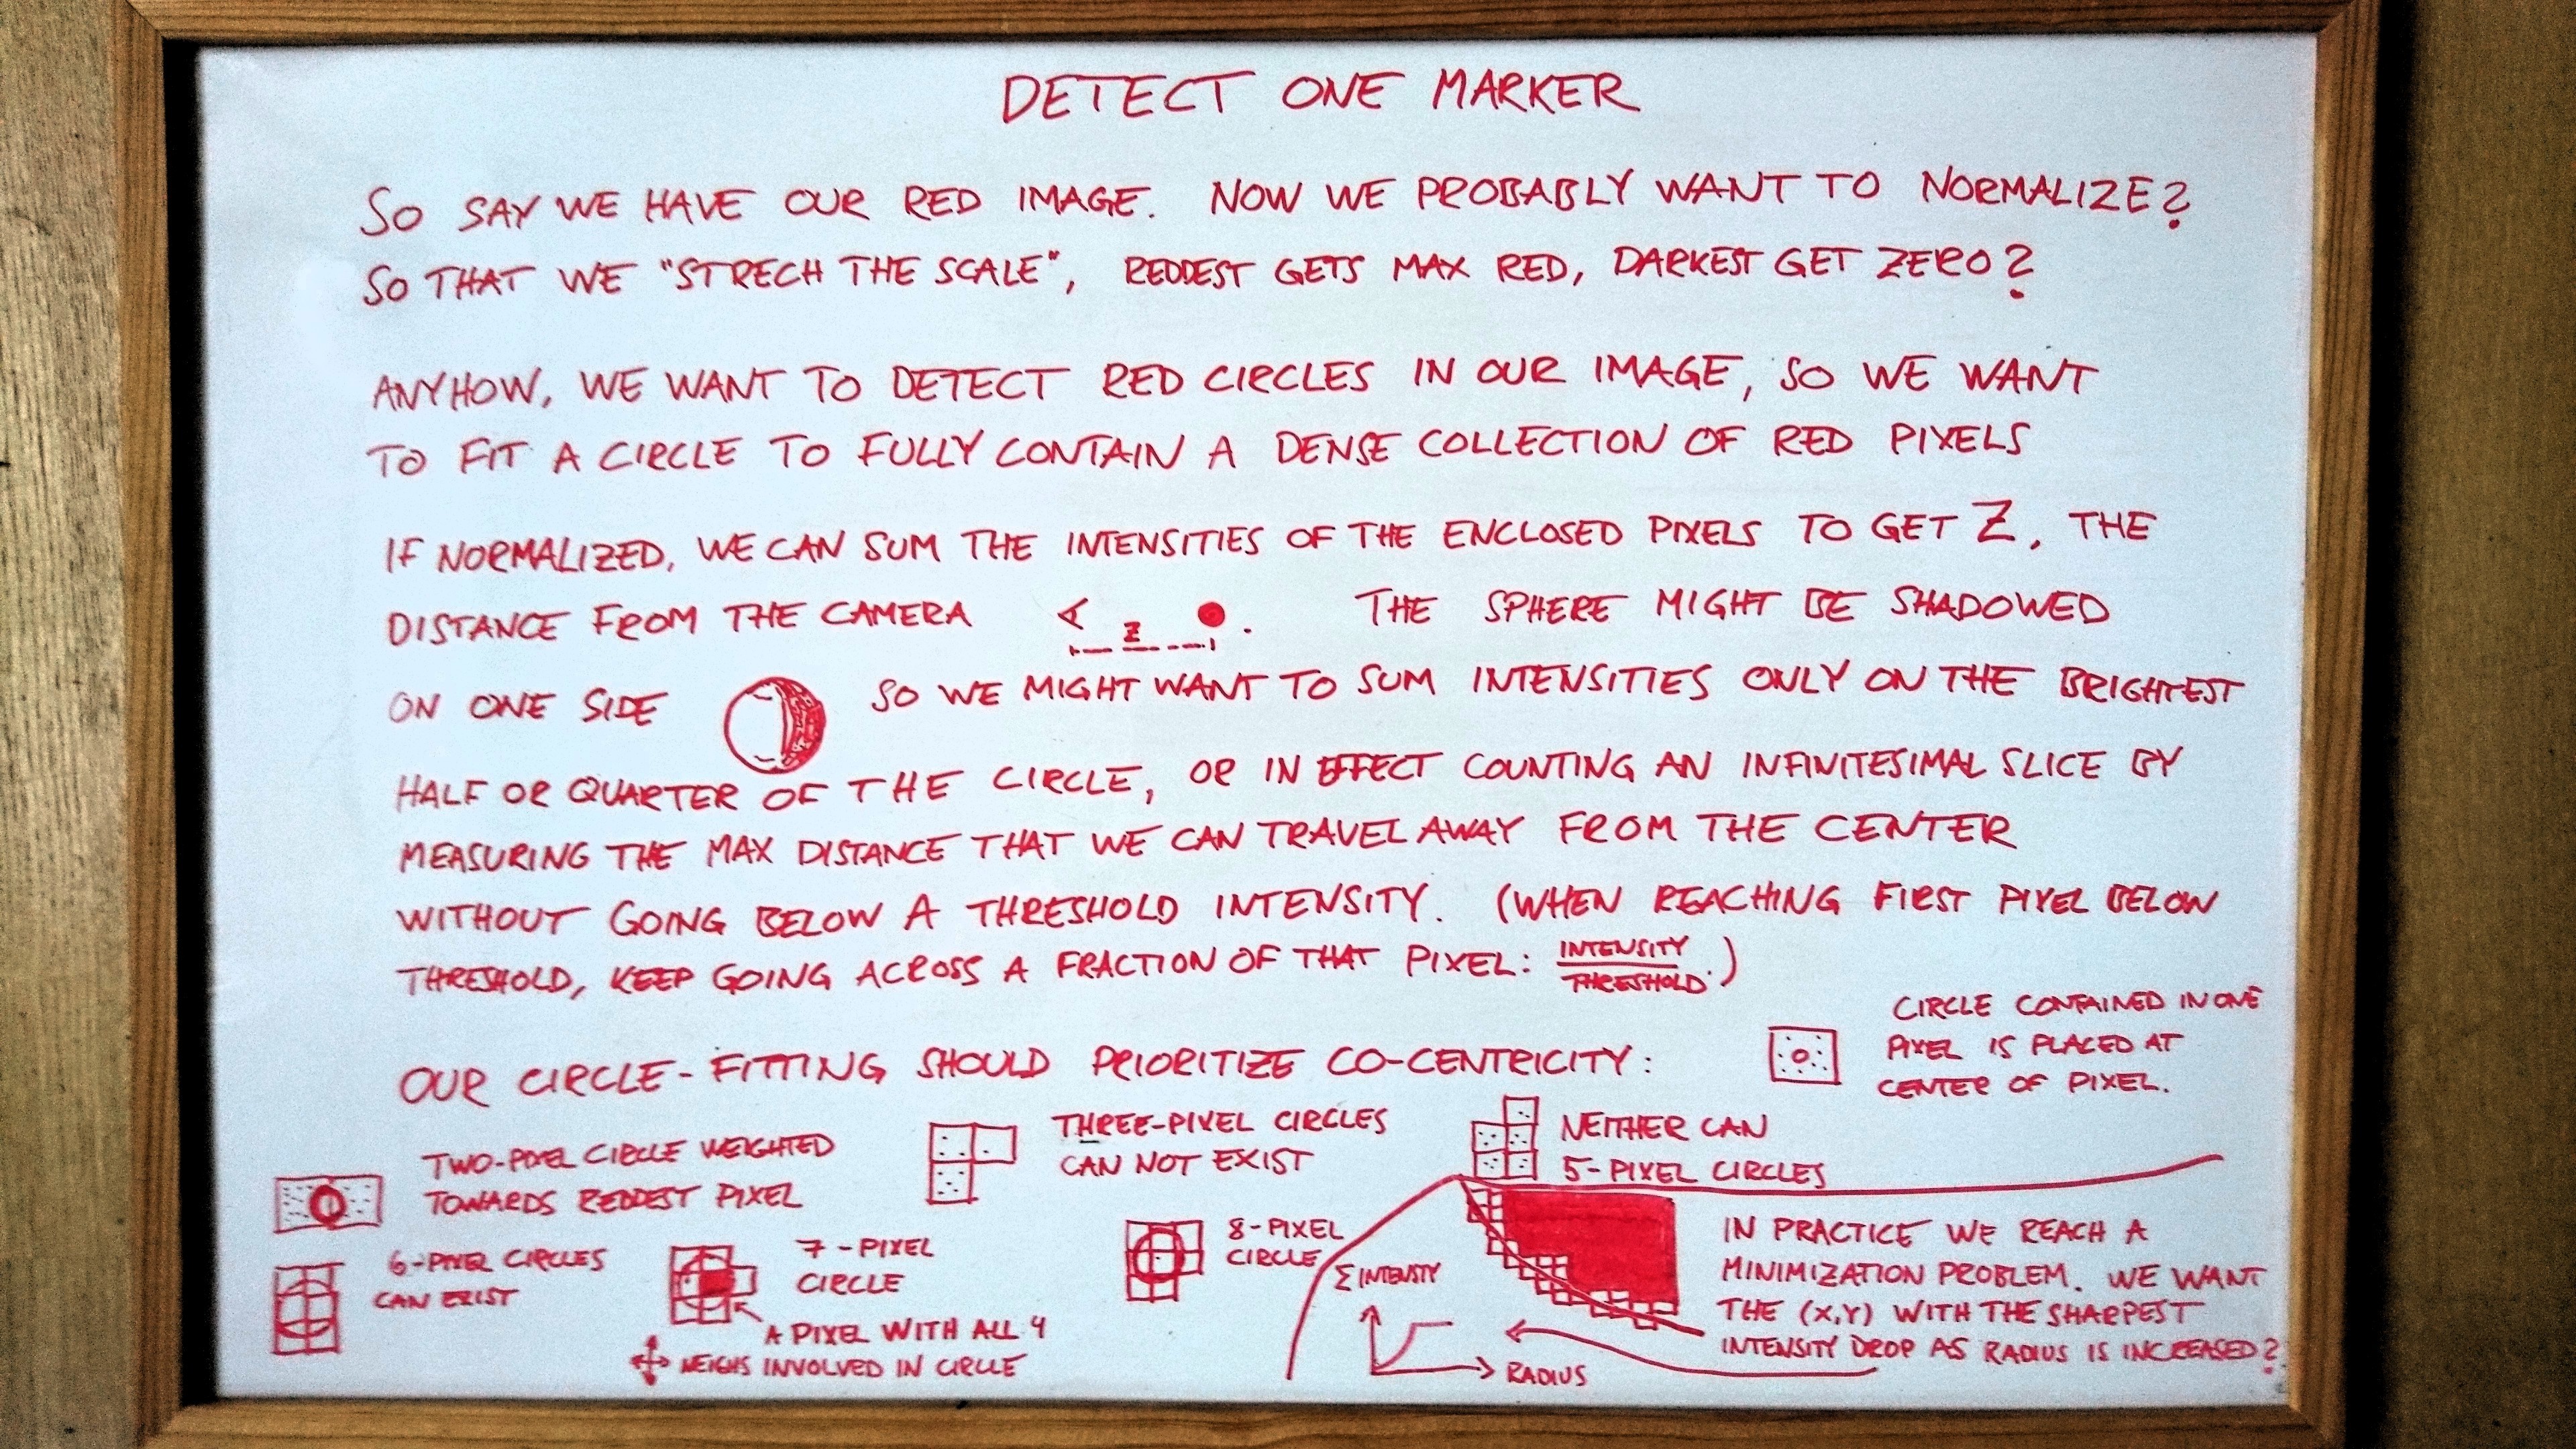 DETECT ONE MARKER
SO SAY WE HAVE OUR RED IMAGE. NOW WE PROBABLY WANT TO NORMALIZE?
SO THAT WE "STRECH THE SCALE", REDDEST GETS MAX RED, DARKEST GET ZERO?
ANYHOW, WE WANT TO DETECT RED CIRCLES IN OUR IMAGE, SO WE WANT
TO FIT A CIRCLE TO FULLY CONTAIN A DENSE COLLECTION OF RED PIXELS
IF NORMALIZED, WE CAN SUM THE INTENSITIES OF THE ENCLOSED PIXELS TO GET Z, THE
DISTANCE FROM THE CAMERA Z . THE SPHERE MIGHT BE SHADOWED
ON ONE SIDE SO WE MIGHT WANT TO SUM INTENSITIES ONLY ON THE BRIGHTEST
HALF OR QUARTER OF THE CIRCLE, OR IN EFFECT COUNTING AN INFINITESIMAL SLICE BY
MEASURING THE MAX DISTANCE THAT WE CAN TRAVEL AWAY FROM THE CENTER
WITHOUT GOING BELOW A THRESHOLD INTENSITY. (WHEN REACHING FIRST PIXEL BELOW
THRESHOLD, KEEP GOING ACROSS A FRACTION OF THAT PIXEL: INTENSITY
THRESHOLD.)
OUR CIRCLE-FITTING SHOULD PRIORITIZE CO-CENTRICITY:
CIRCLE CONTAINED IN ONE
PIXEL IS PLACED AT
CENTER OF PIXEL.
TWO-PIXEL CIRCLE WEIGHTED
TOWARDS REDDEST PIXEL
THREE-PIXEL CIRCLES
CAN NOT EXIST
NEITHER CAN
5-PIXEL CIRCLES
6-PIXEL CIRCLES
CAN EXIST
7-PIXEL
CIRCLE
A PIXEL WITH ALL 4
NEIGHS INVOLVED IN CIRCLE
8-PIXEL
CIRCLE
Σ INTENSITY
RADIUS
IN PRACTICE WE REACH A
MINIMIZATION PROBLEM. WE WANT
THE (X,Y) WITH THE SHARPEST
INTENSITY DROP AS RADIUS IS INCREASED?